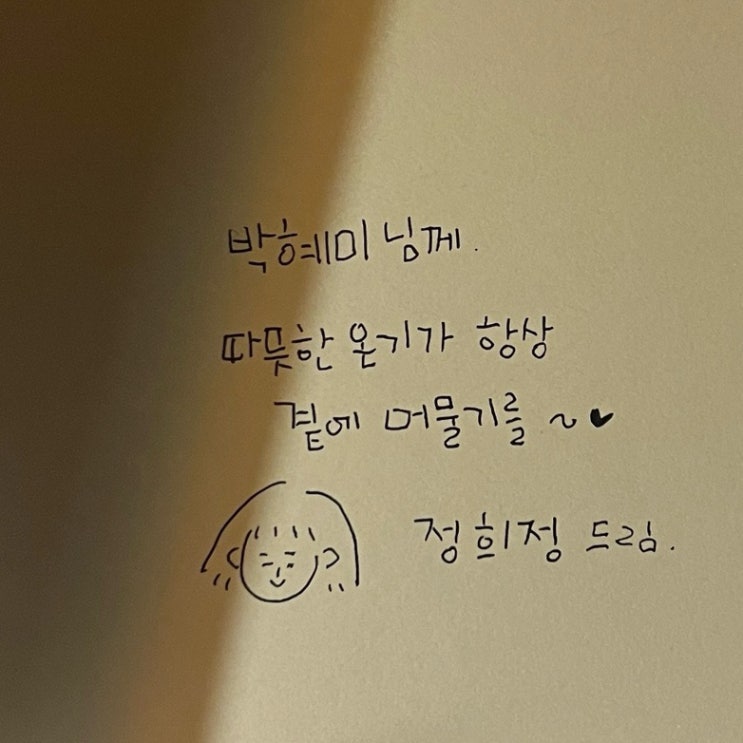 박혜미 님께.
따뜻한 온기가 항상
곁에 머물기를 ~♥
정희정 드림.